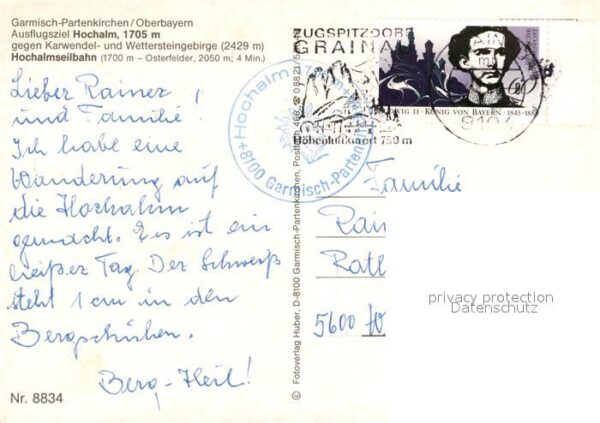 Garmisch-Partenkirchen/Oberbayern
Ausflugsziel Hochalm, 1705 m
gegen Karwendel- und Wettersteingebirge (2429 m)
Hochalmseilbahn (1700 m – Osterfelder, 2050 m; 4 Min.)
Lieber Rainer,
und Familie
Ich habe eine
Wanderung auf
die Hochalm
gemacht. Es ist ein
heißer Tag. Der Schweiß
steht 1 cm in den
Bergschuhen.
Berg-Heil!
Nr. 8834
© Fotoverlag Huber, D-8100 Garmisch-Partenkirchen
Hochalm
8100 Garmisch-Partenkirchen
ZUGSPITZDORF
GRAINAU
Höhenluftkurort 750 m
LUDWIG II · KÖNIG VON BAYERN · 1845-1886
Familie
Rain
Rath
5600 W
privacy protection
Datenschutz